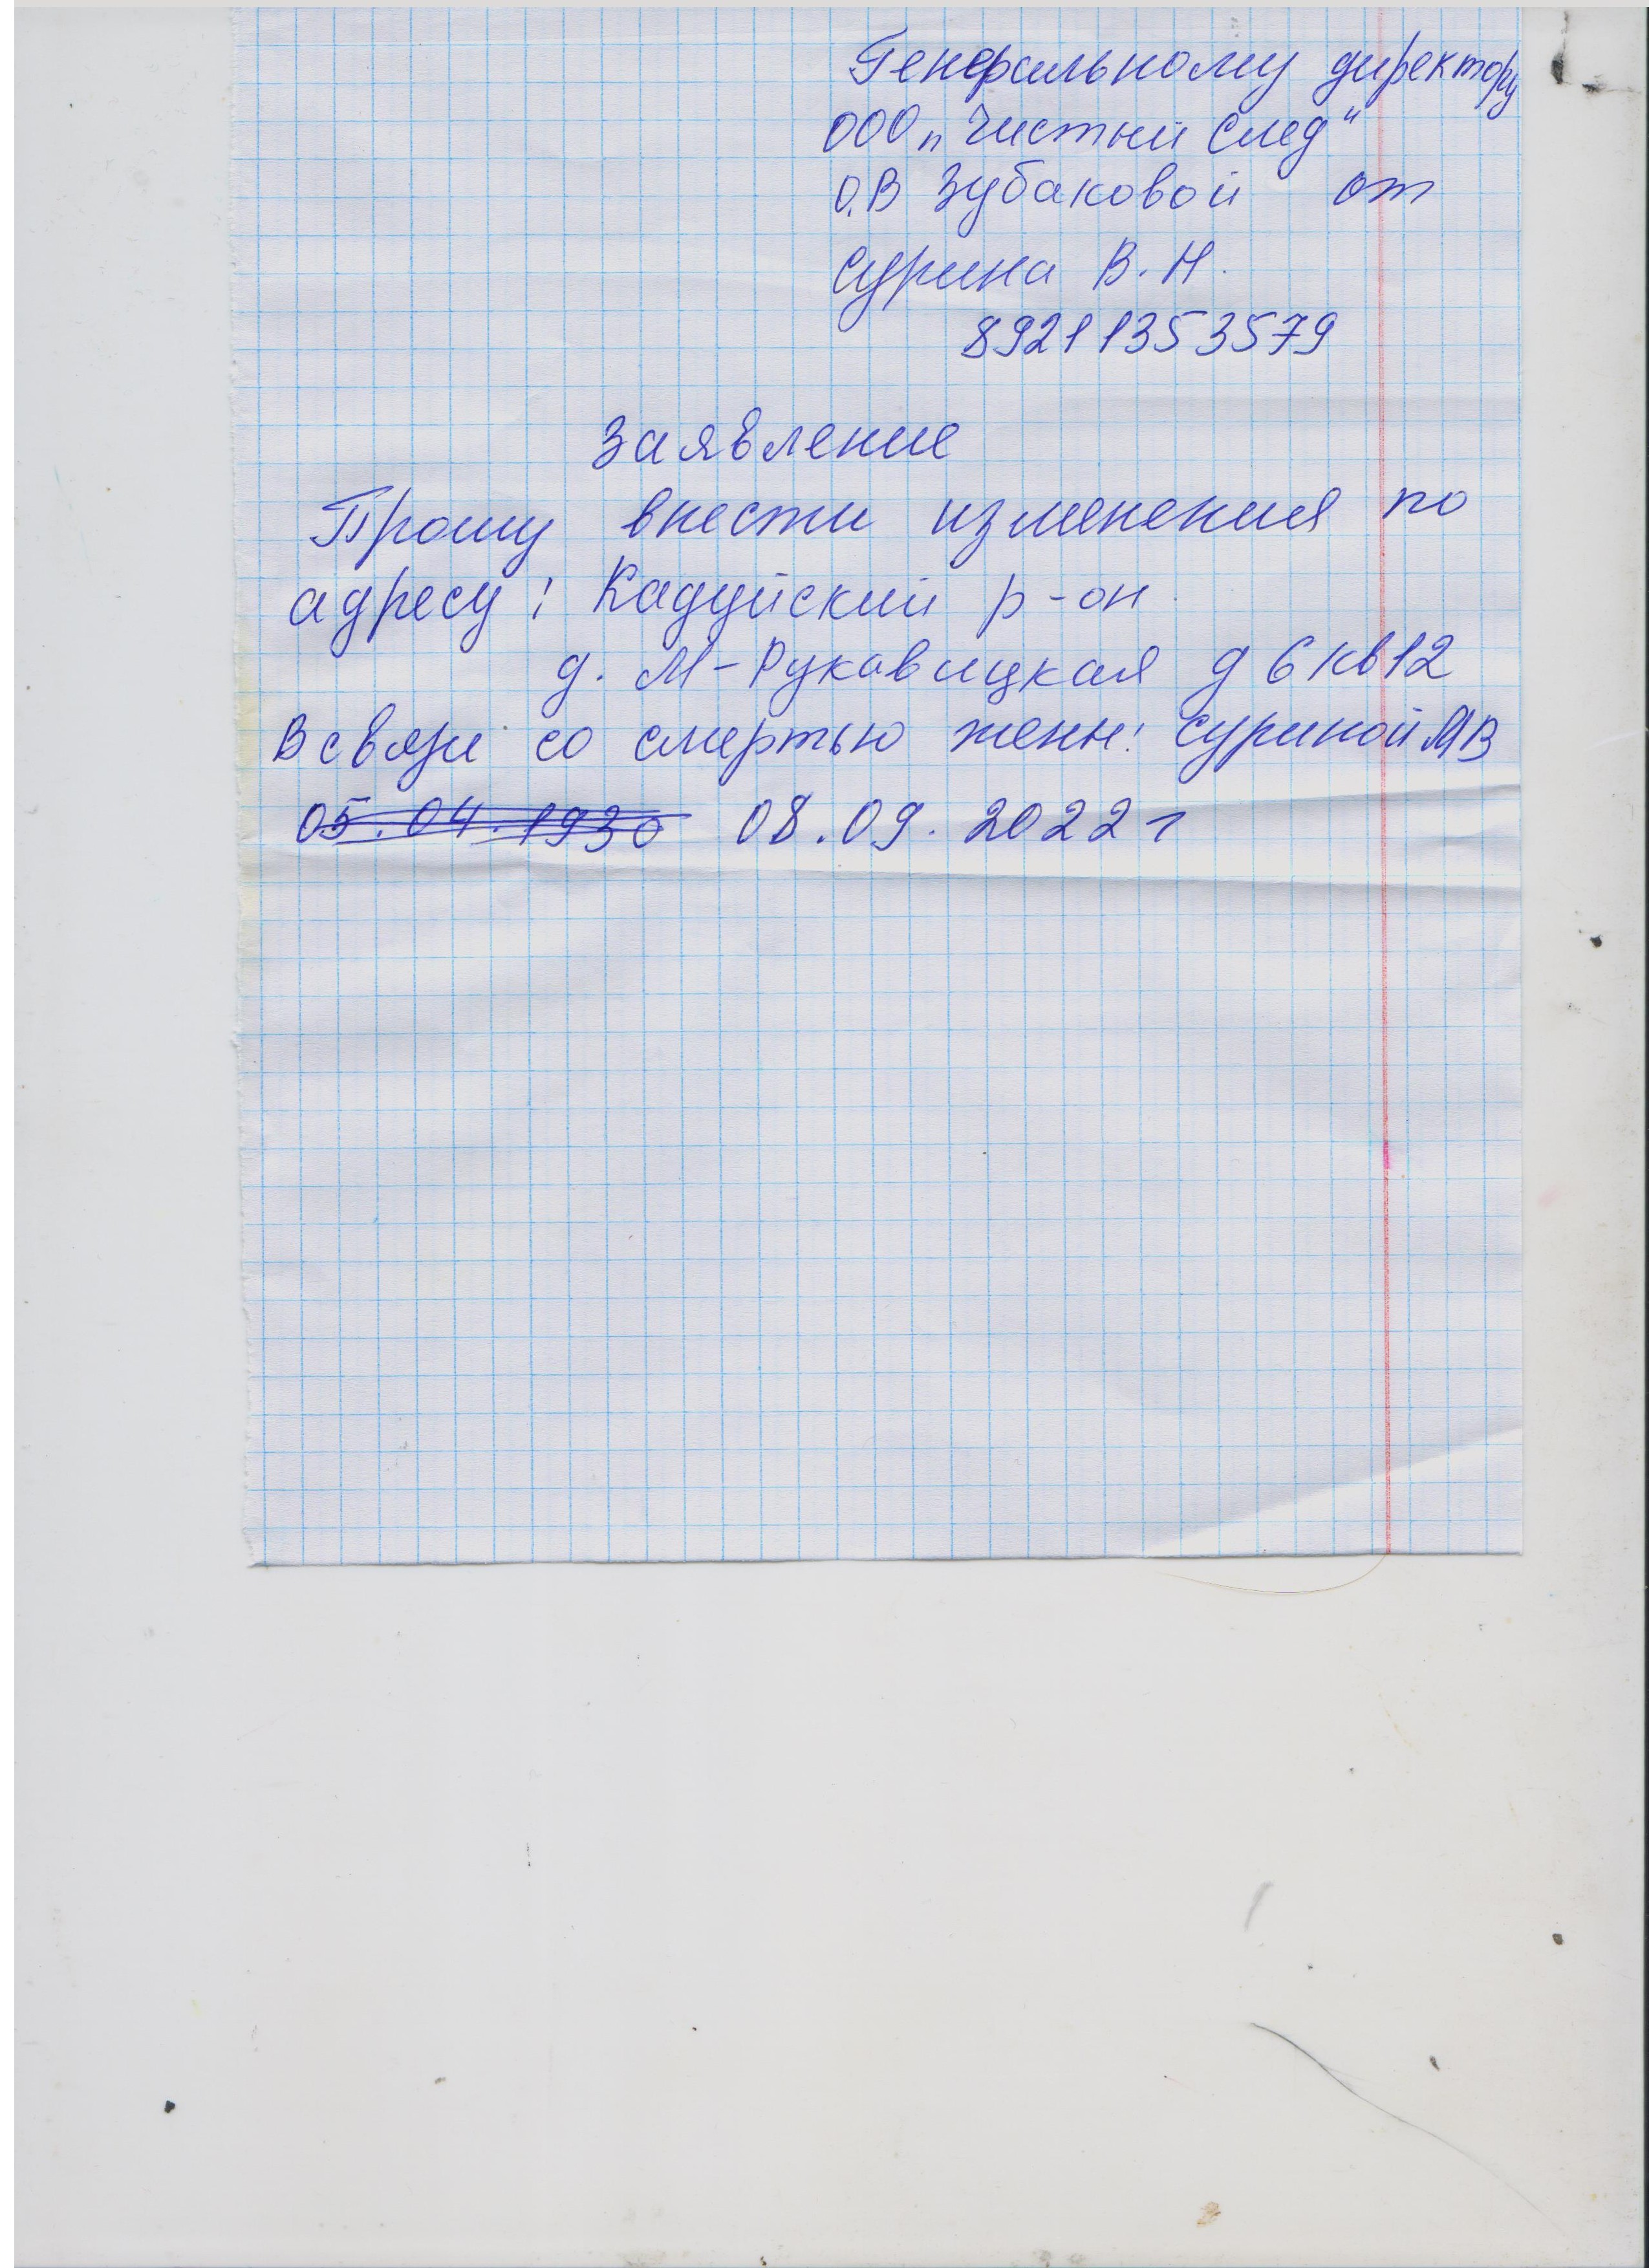 Генеральному директору
ООО „Чистый След"
О.В Зубаковой от
Сурина В.Н.
89211353579
Заявление
Прошу внести изменения по
адресу: Кадуйский р-он
д. М-Рукавицкая д 6 кв 12
В связи со смертью жены: Суриной МВ
05.04.1930 08.09.2022 г